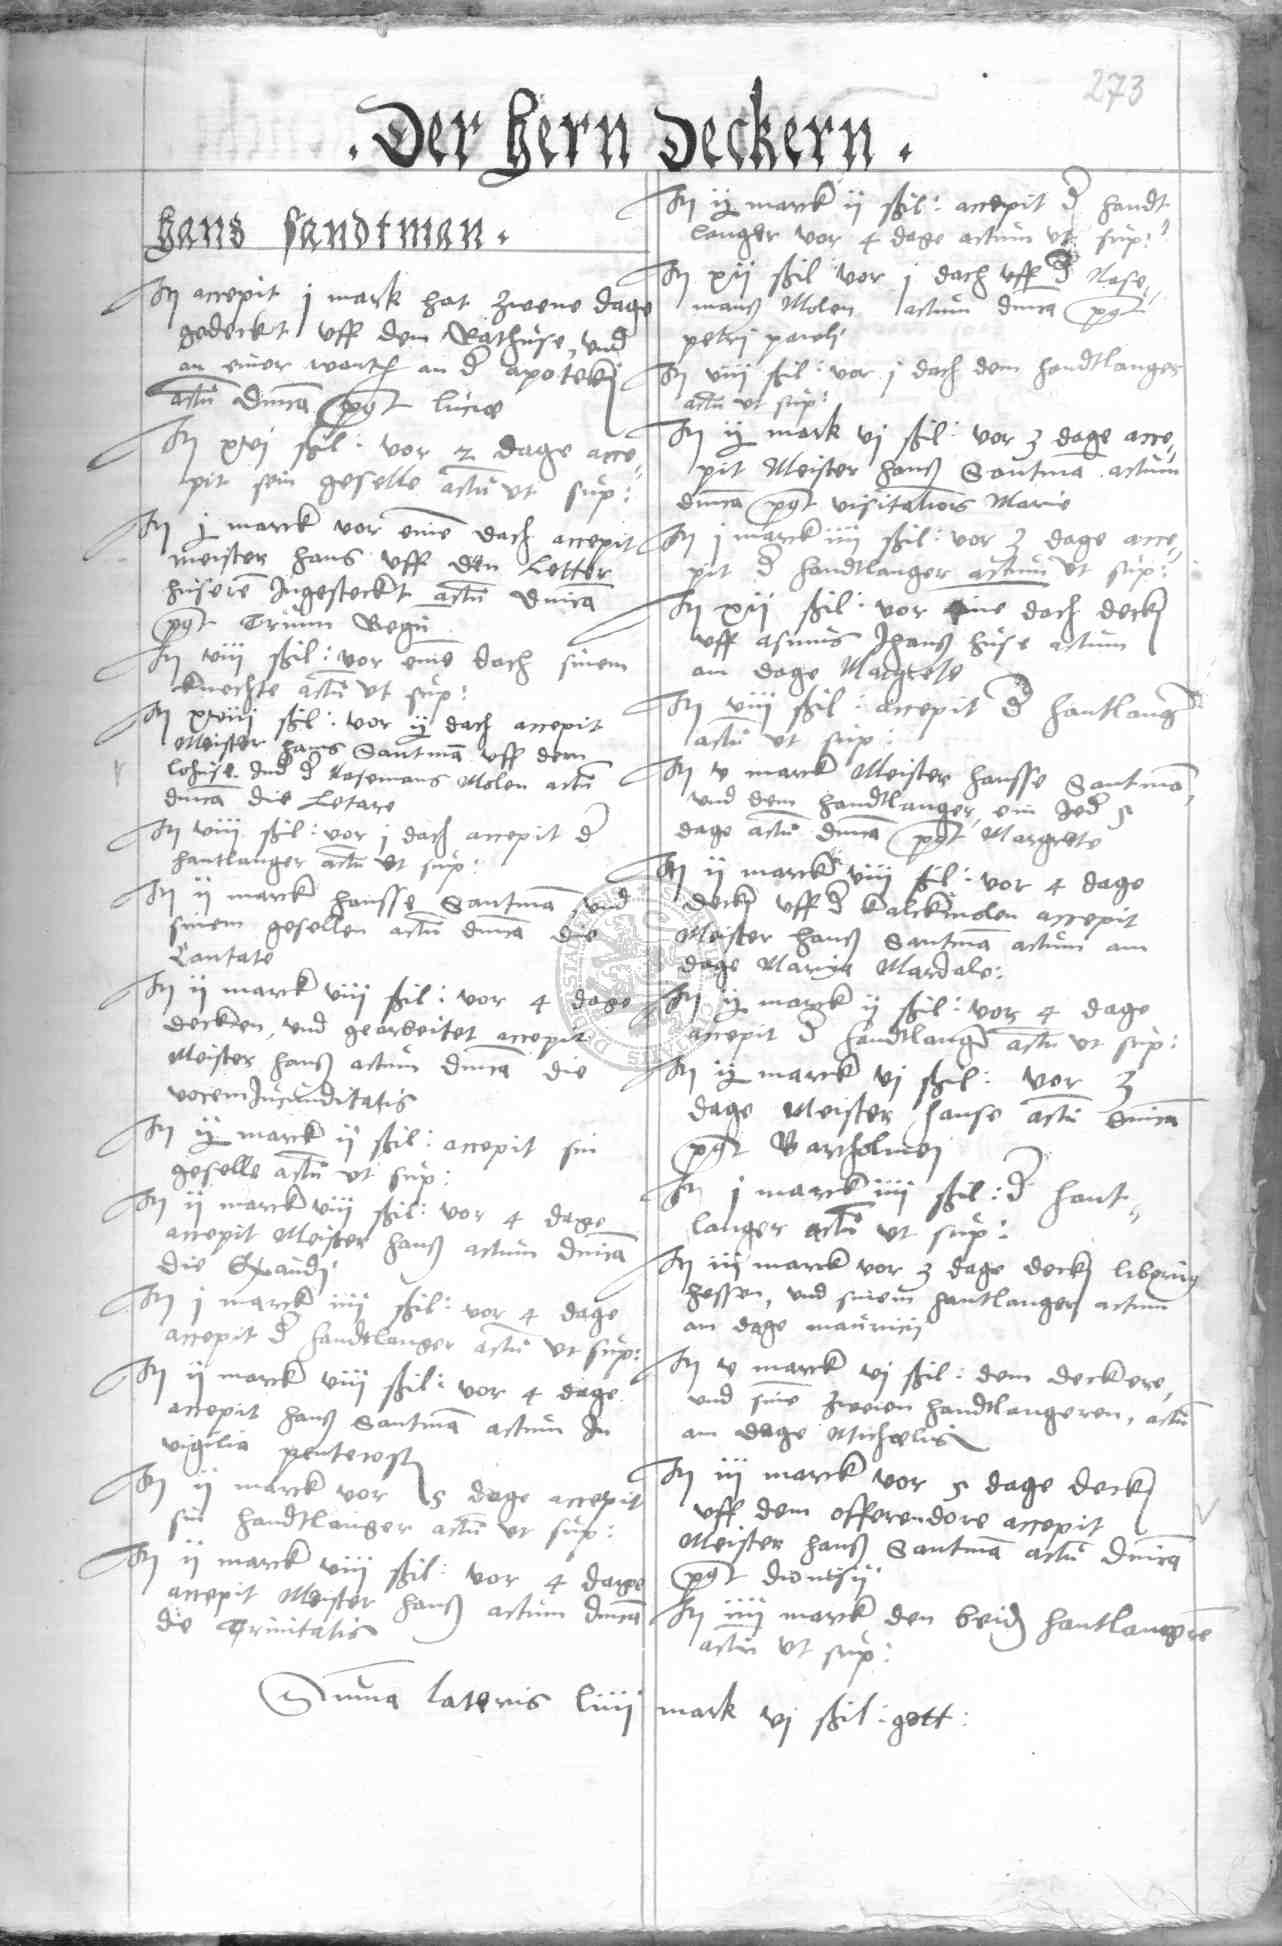 273
. Der hern deckern .
hans sandtman .
Itm accepit j mark hat zwene dage
gedeckt uff dem Rathuse, und
an einer wanth an d' apoteken
actu dnica post lucie
Itm xvj skil: vor 2 dage acce,,
pit sin geselle actu ut sup:
Itm j marck vor eine dach accepit
meister hans uff den Letter
huseren Ingesteckt actu dnica
post Trium Regu
Itm viij skil: vor eine dach sinem
knechte actu ut sup:
Itm xviij skil: vor ij dach accepit
Meister hans Santma uff dem
lohuse und d' Rosemans Molen actu
dnica die Letare
Itm viij skil: vor j dach accepit d'
hantlanger actu ut sup:
Itm ij marck hansse Santma und
sinem gesellen actu dnica die
Cantate
Itm ij marck viij skil: vor 4 dage
decken, und gearbeitet accepit
Meister hanß actum dnica die
vocem Jucunditatis
Itm ij marck ij skil: accepit sin
geselle actu ut sup:
Itm ij marck viij skil: vor 4 dage
accepit Meister hanß actum dnica
die Exaudi
Itm j marck iiij skil: vor 4 dage
accepit d' handtlanger actu ut sup:
Itm ij marck viij skil: vor 4 dage
accepit hanß Santma actum In
vigilia pentecost
Itm ij marck vor 5 dage accepit
sin handtlanger actu ut sup:
Itm ij marck viij skil: vor 4 dage
accepit Meister hanß actum dnica
die Trinitatis
Itm ij marck ij skil: accepit d' handt,,
langer vor 4 dage actum ut sup:
Itm xij skil vor j dach uff d' Rose,,
mans Molen actum dnica post
petri pauli
Itm viij skil: vor j dach dem handtlanger
actu ut sup:
Itm ij mark vj skil: vor 3 dage acce,,
pit Meister hanß Santma actum
dnica post visitatiois Marie
Itm j marck iiij skil: vor 3 dage acce,,
pit d' handtlanger actum ut sup:
Itm xij skil: vor eine dach decken
uff asmus Jhanß huse actum
am dage Margrete
Itm viij skil: accepit d' hantlanger
actu ut sup:
Itm v marck Meister hansse Santman,
und dem handtlanger, ein Jed' 5
dage actu dnica post Margrete
Itm ij marck viij skil: vor 4 dage
decken uff d' kalckmolen accepit
Meister hanß Santma actum am
dage Maria Mardale:
Itm ij marck ij skil: vor 4 dage
accepit d' handtlanger actu ut sup:
Itm ij marck vj skil: vor 3
dage Meister hanse actu dnica
post Bartholmei
Itm j marck iiij skil: d' hant,,
langer actu ut sup:
Itm iij marck vor 3 dage decken
hessen, und sinem hantlanger actum
am dage mauricii
Itm v marck vj skil: dem deckere,
und sine zweien handtlangeren, actu
am dage Michaelis
Itm iij marck vor 5 dage decken
uff dem offerendore accepit
Meister hanß Santma actu dnica
post dionisii
Itm iiij marck den beiden hantlangere
actu ut sup:
Suma lateris liiij mark vj skil: gott: